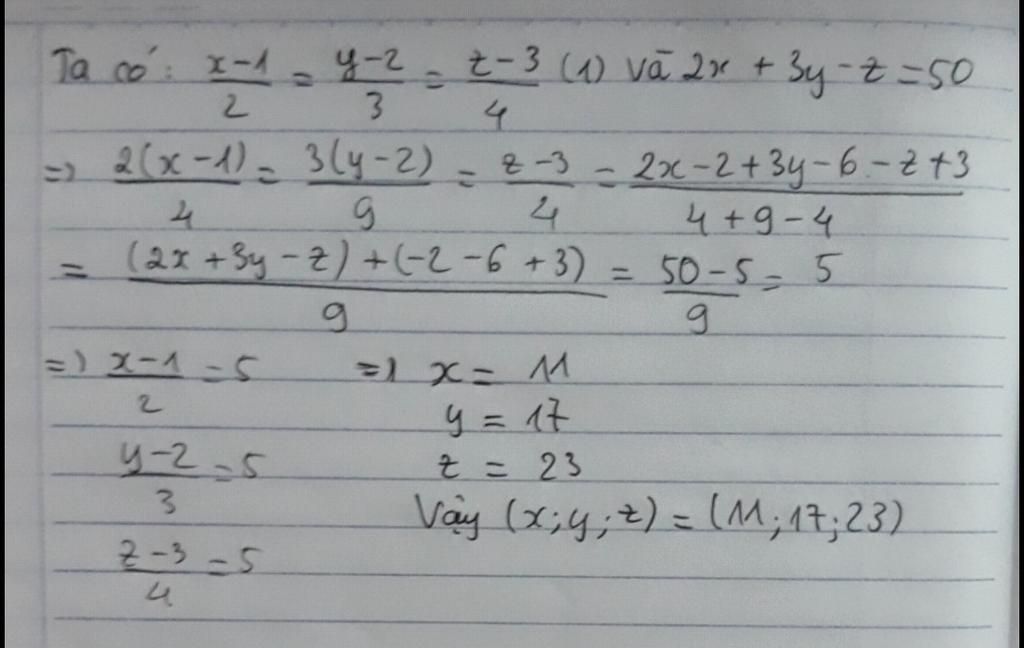 Ta có: \frac{x-1}{2} = \frac{y-2}{3} = \frac{z-3}{4} (1) và 2x + 3y - z = 50
=> \frac{2(x-1)}{4} = \frac{3(y-2)}{9} = \frac{z-3}{4} = \frac{2x-2+3y-6-z+3}{4+9-4}
= \frac{(2x+3y-z)+(-2-6+3)}{9} = \frac{50-5}{9} = 5
=> \frac{x-1}{2} = 5 => x = 11
y = 17
\frac{y-2}{3} = 5 z = 23
Vậy (x;y;z) = (11;17;23)
\frac{z-3}{4} = 5